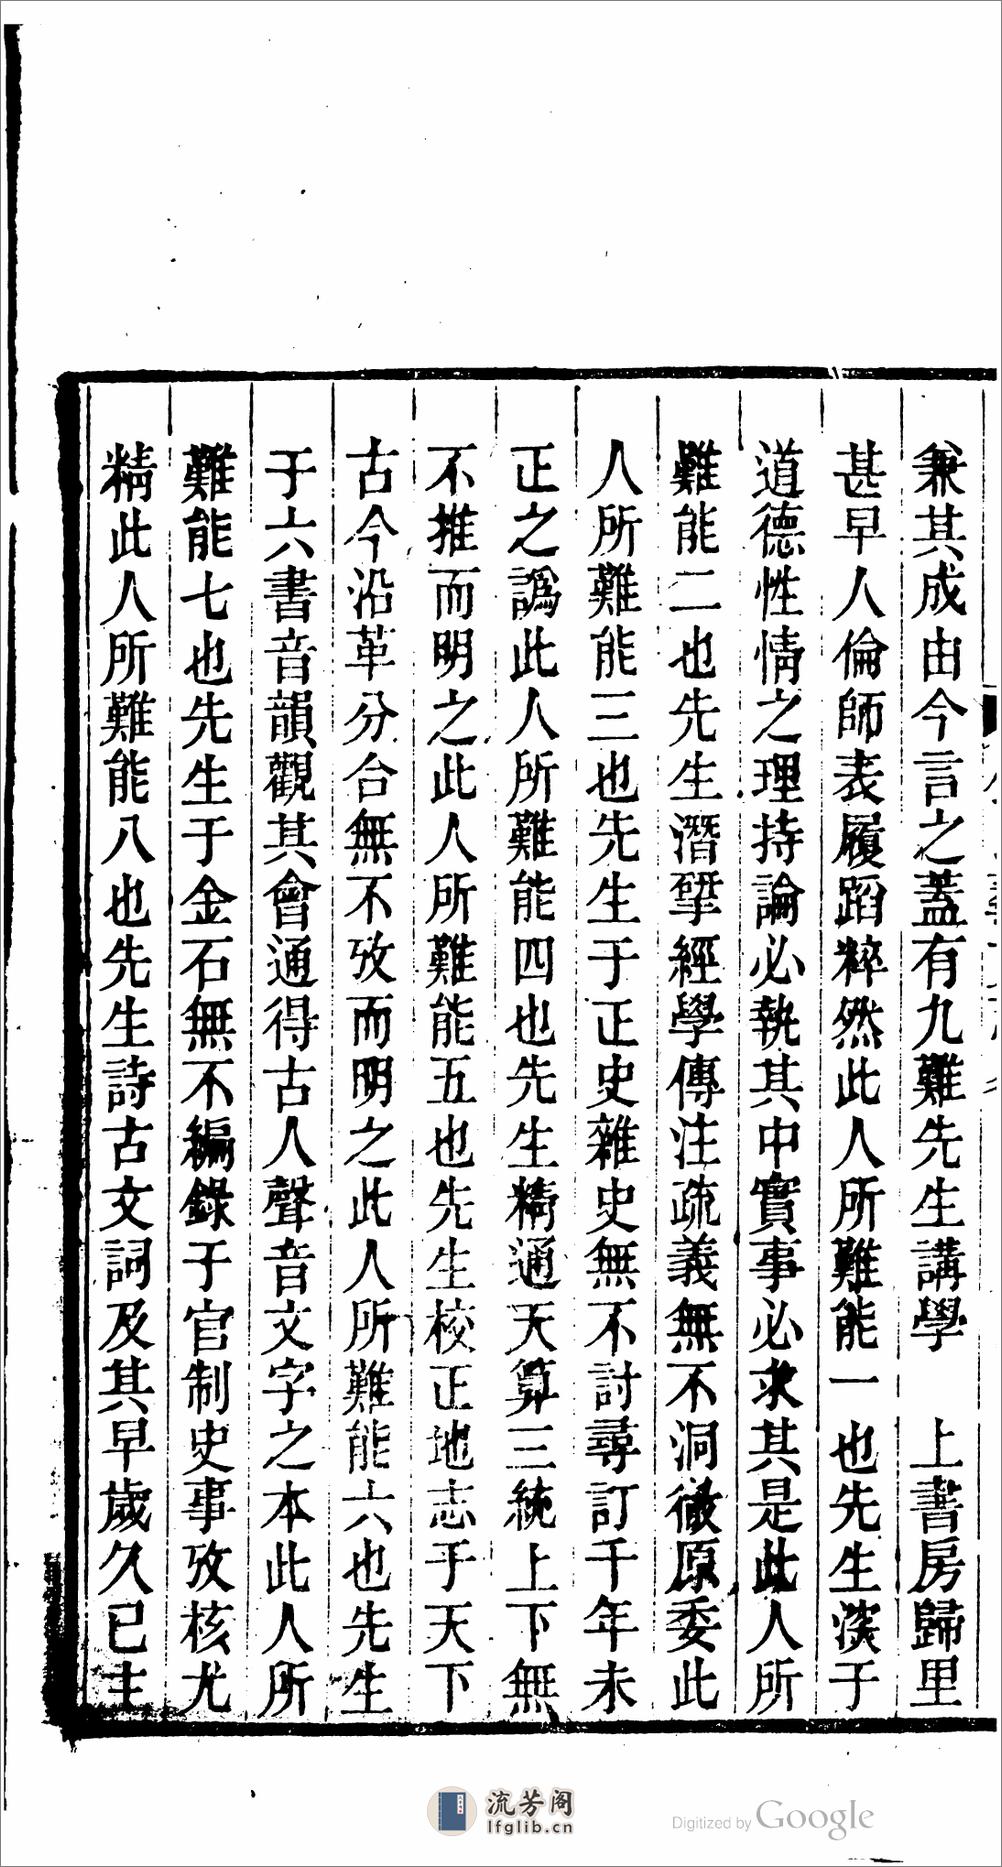 兼其成由今言之蓋有九難先生講學　上書房歸里
甚早人倫師表履蹈粹然此人所難能一也先生深于
道德性情之理持論必執其中實事必求其是此人所
難能二也先生潛揅經學傳注疏義無不洞徹原委此
人所難能三也先生于正史雜史無不討尋訂千年未
正之譌此人所難能四也先生精通天算三統上下無
不推而明之此人所難能五也先生校正地志于天下
古今沿革分合無不攷而明之此人所難能六也先生
于六書音韻觀其會通得古人聲音文字之本此人所
難能七也先生于金石無不編錄于官制史事攷核尤
精此人所難能八也先生詩古文詞及其早歲久已主
流芳阁
lfglib.cn
Digitized by Google